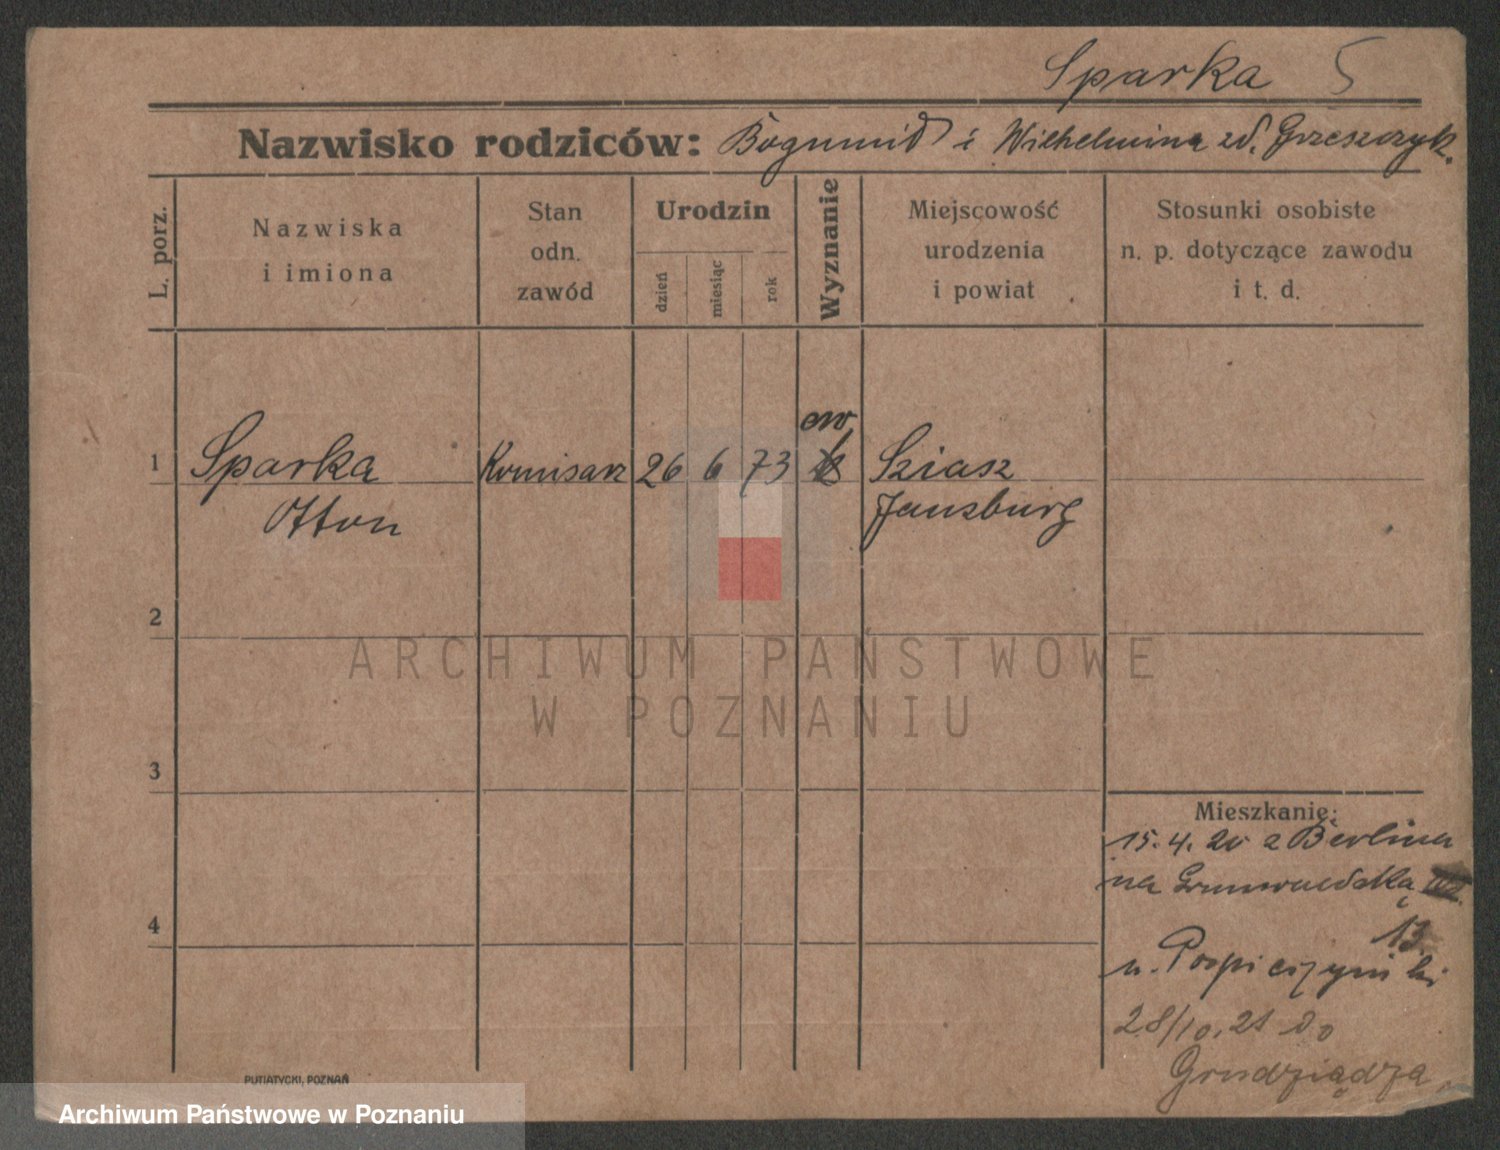 Sparka 5
Nazwisko rodziców: Bogumił i Wilhelmina zd. Grzeszczyk.
L. porz.
Nazwiska
i imiona
Stan
odn.
zawód
Urodzin
dzień
miesiąc
rok
Wyznanie
Miejscowość
urodzenia
i powiat
Stosunki osobiste
n. p. dotyczące zawodu
i t. d.
1 Sparka Komisarz 26 6 73 ew Sziasz
Otton Jansburg
2
3
4
Mieszkanie:
15. 4. 20 z Berlina
na Grunwaldzką
13.
u.
28/10. 21 do
Grudziądza
PUTIATYCKI, POZNAŃ
ARCHIWUM PAŃSTWOWE
W POZNANIU
Archiwum Państwowe w Poznaniu